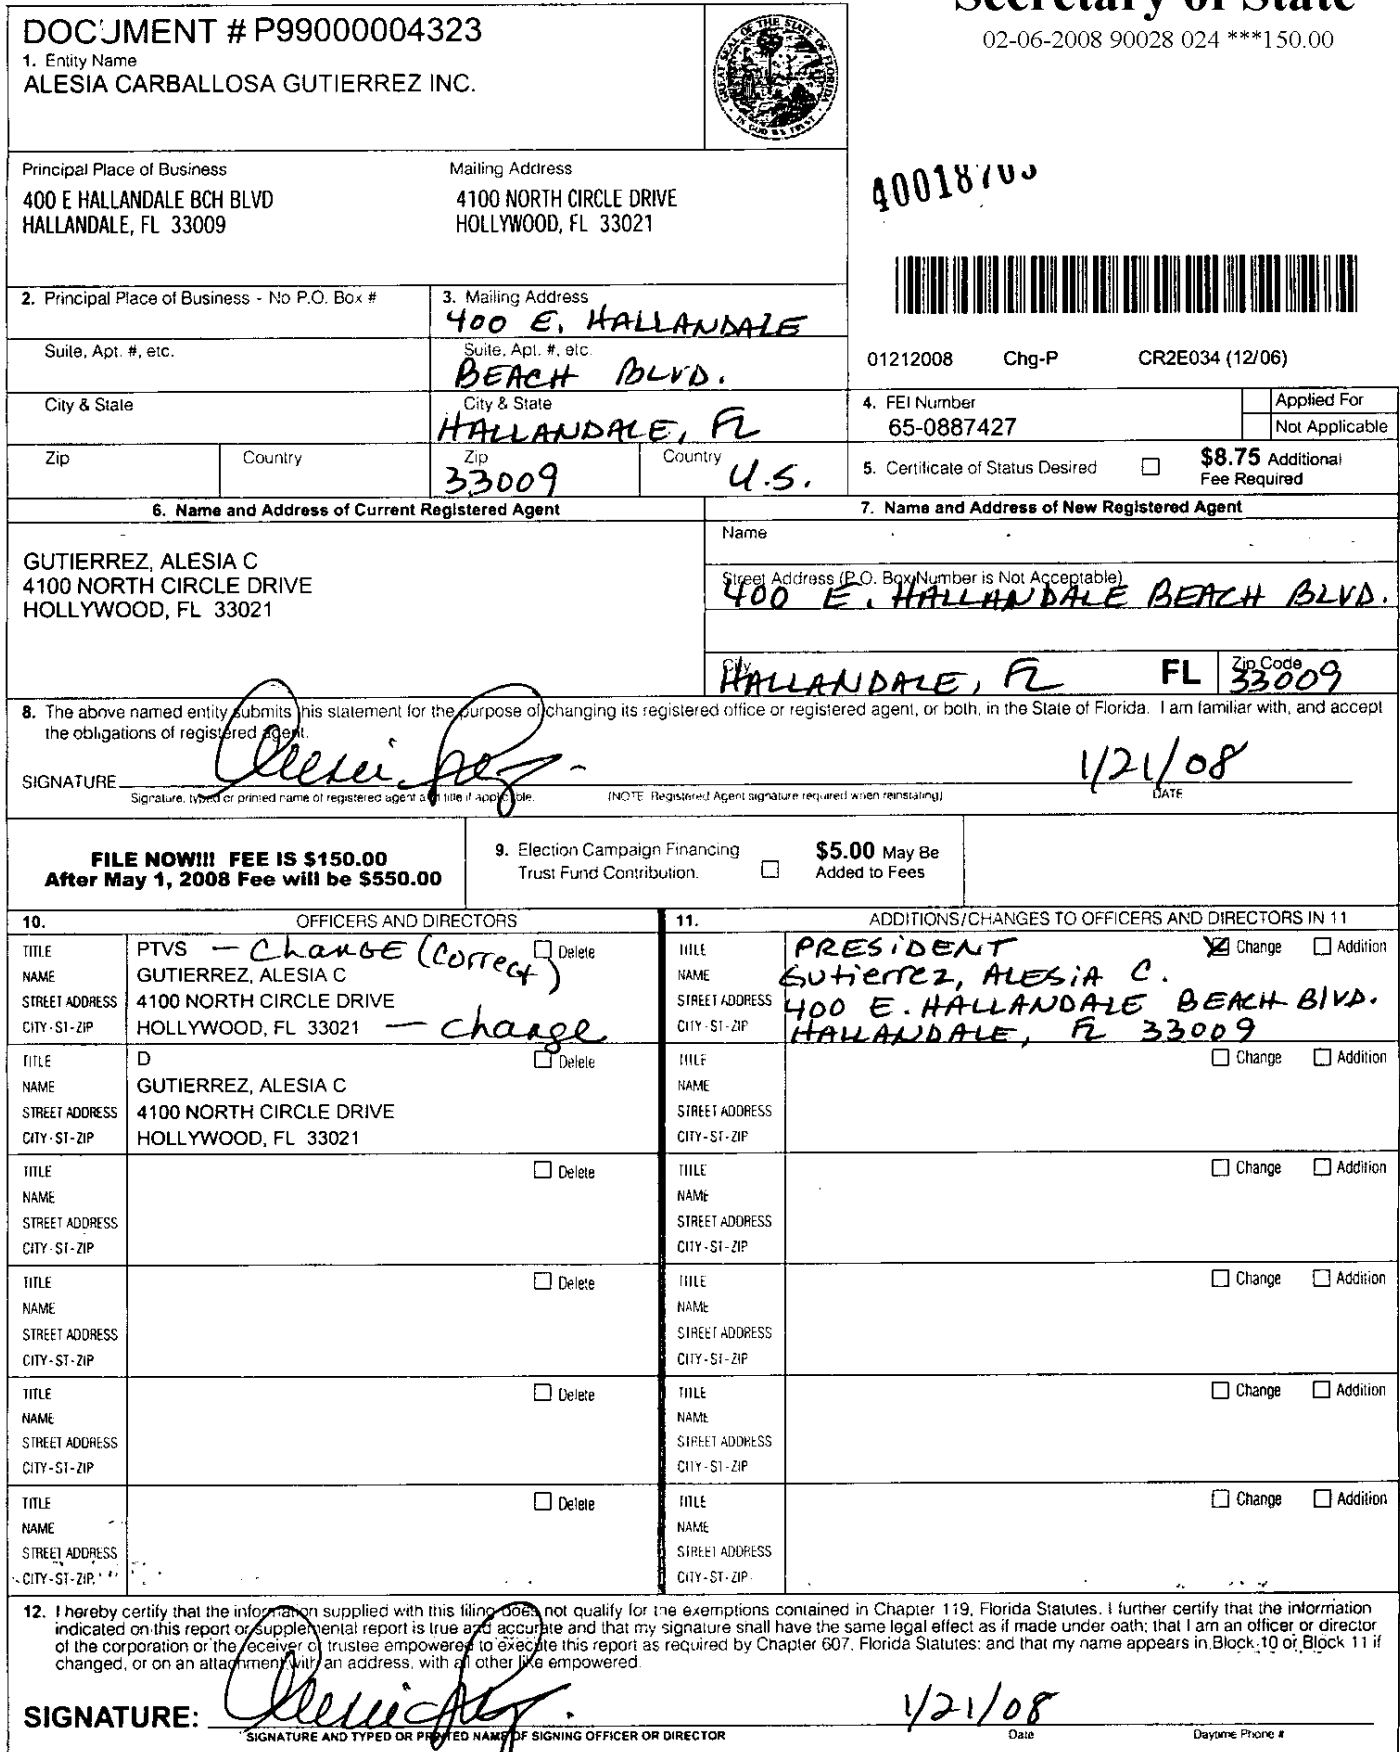 Secretary of State
02-06-2008 90028 024 ***150.00
DOCUMENT # P99000004323
1. Entity Name
ALESIA CARBALLOSA GUTIERREZ INC.
GREAT SEAL OF THE STATE OF FLORIDA
IN GOD WE TRUST
Principal Place of Business
400 E HALLANDALE BCH BLVD
HALLANDALE, FL 33009
Mailing Address
4100 NORTH CIRCLE DRIVE
HOLLYWOOD, FL 33021
2. Principal Place of Business - No P.O. Box #
3. Mailing Address
400 E. HALLANDALE
Suite, Apt. #, etc.
Suite, Apt. #, etc.
BEACH BLVD.
01212008 Chg-P CR2E034 (12/06)
City & State
City & State
HALLANDALE, FL
4. FEI Number
65-0887427
Applied For
Not Applicable
Zip
Country
Zip
33009
Country
U.S.
5. Certificate of Status Desired
$8.75 Additional
Fee Required
6. Name and Address of Current Registered Agent
GUTIERREZ, ALESIA C
4100 NORTH CIRCLE DRIVE
HOLLYWOOD, FL 33021
7. Name and Address of New Registered Agent
Name
Street Address (P.O. Box Number is Not Acceptable)
400 E. HALLANDALE BEACH BLVD.
City
HALLANDALE, FL
FL
Zip Code
33009
8. The above named entity submits this statement for the purpose of changing its registered office or registered agent, or both, in the State of Florida. I am familiar with, and accept
the obligations of registered agent.
SIGNATURE
1/21/08
Signature, typed or printed name of registered agent and title if applicable.
(NOTE Registered Agent signature required when reinstating)
DATE
FILE NOW!!! FEE IS $150.00
After May 1, 2008 Fee will be $550.00
9. Election Campaign Financing
Trust Fund Contribution.
$5.00 May Be
Added to Fees
10. OFFICERS AND DIRECTORS
TITLE PTVS — CHANGE (Correct) Delete
NAME GUTIERREZ, ALESIA C
STREET ADDRESS 4100 NORTH CIRCLE DRIVE
CITY-ST-ZIP HOLLYWOOD, FL 33021 — change
TITLE D Delete
NAME GUTIERREZ, ALESIA C
STREET ADDRESS 4100 NORTH CIRCLE DRIVE
CITY-ST-ZIP HOLLYWOOD, FL 33021
TITLE Delete
NAME
STREET ADDRESS
CITY-ST-ZIP
TITLE Delete
NAME
STREET ADDRESS
CITY-ST-ZIP
TITLE Delete
NAME
STREET ADDRESS
CITY-ST-ZIP
TITLE Delete
NAME
STREET ADDRESS
CITY-ST-ZIP
11. ADDITIONS/CHANGES TO OFFICERS AND DIRECTORS IN 11
TITLE PRESIDENT Change Addition
NAME Gutierrez, ALESIA C.
STREET ADDRESS 400 E. HALLANDALE BEACH BlVD.
CITY-ST-ZIP HALLANDALE, FL 33009
TITLE Change Addition
NAME
STREET ADDRESS
CITY-ST-ZIP
TITLE Change Addition
NAME
STREET ADDRESS
CITY-ST-ZIP
TITLE Change Addition
NAME
STREET ADDRESS
CITY-ST-ZIP
TITLE Change Addition
NAME
STREET ADDRESS
CITY-ST-ZIP
TITLE Change Addition
NAME
STREET ADDRESS
CITY-ST-ZIP
12. I hereby certify that the information supplied with this filing does not qualify for the exemptions contained in Chapter 119, Florida Statutes. I further certify that the information
indicated on this report or supplemental report is true and accurate and that my signature shall have the same legal effect as if made under oath; that I am an officer or director
of the corporation or the receiver or trustee empowered to execute this report as required by Chapter 607, Florida Statutes; and that my name appears in Block 10 or Block 11 if
changed, or on an attachment with an address, with all other like empowered.
SIGNATURE:
1/21/08
SIGNATURE AND TYPED OR PRINTED NAME OF SIGNING OFFICER OR DIRECTOR
Date
Daytime Phone #